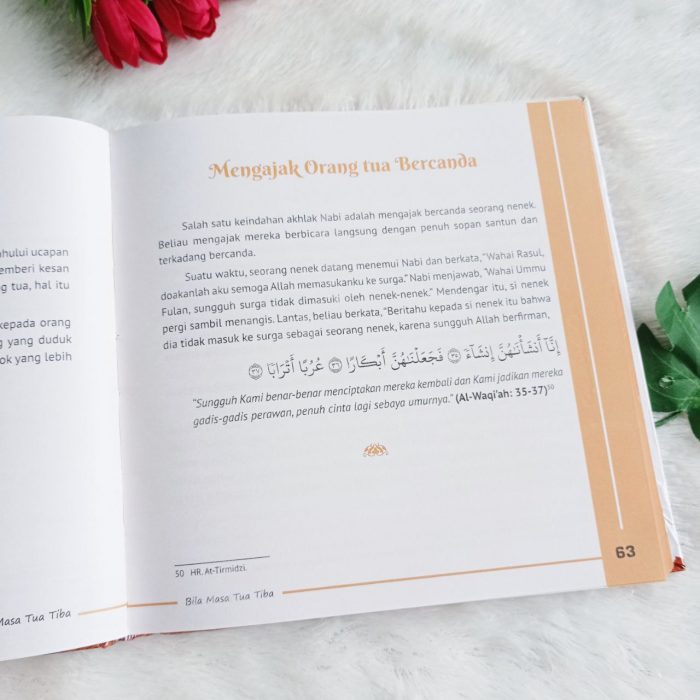 ahului ucapan
emberi kesan
g tua, hal itu
kepada orang
g yang duduk
ok yang lebih
Masa Tua Tiba
Mengajak Orang tua Bercanda
Salah satu keindahan akhlak Nabi adalah mengajak bercanda seorang nenek.
Beliau mengajak mereka berbicara langsung dengan penuh sopan santun dan
terkadang bercanda.
Suatu waktu, seorang nenek datang menemui Nabi dan berkata, "Wahai Rasul,
doakanlah aku semoga Allah memasukanku ke surga." Nabi menjawab, "Wahai Ummu
Fulan, sungguh surga tidak dimasuki oleh nenek-nenek." Mendengar itu, si nenek
pergi sambil menangis. Lantas, beliau berkata, "Beritahu kepada si nenek itu bahwa
dia tidak masuk ke surga sebagai seorang nenek, karena sungguh Allah berfirman,
إِنَّآ أَنشَأْنَٰهُنَّ إِنشَآءً ۝٣٥ فَجَعَلْنَٰهُنَّ أَبْكَارًا ۝٣٦ عُرُبًا أَتْرَابًا ۝٣٧
"Sungguh Kami benar-benar menciptakan mereka kembali dan Kami jadikan mereka
gadis-gadis perawan, penuh cinta lagi sebaya umurnya." (Al-Waqi'ah: 35-37)50
50 HR. At-Tirmidzi.
Bila Masa Tua Tiba
63